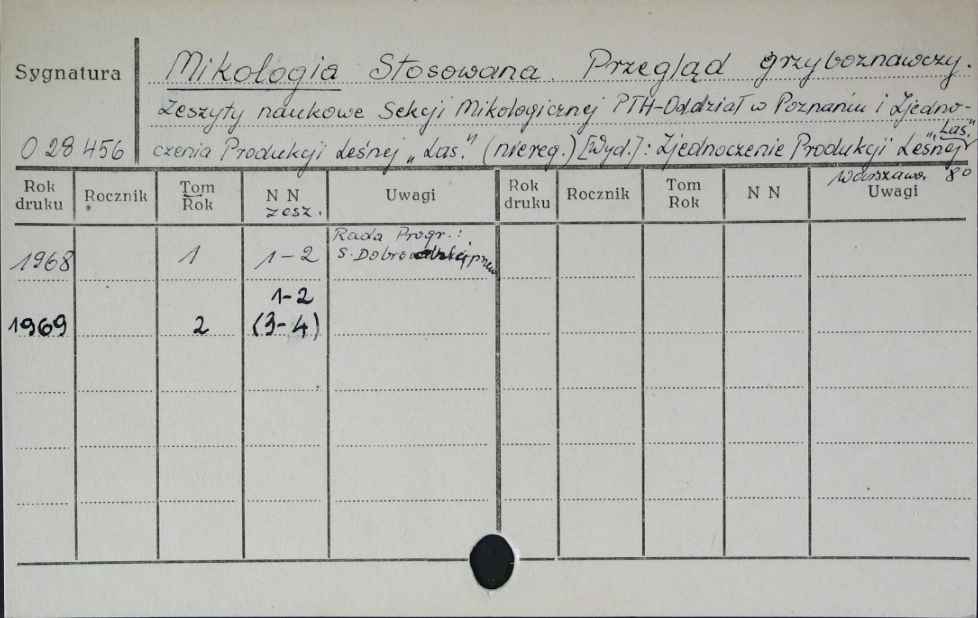 Sygnatura
Mikologia Stosowana. Przegląd grzyboznawczy.
Zeszyty naukowe Sekcji Mikologicznej PTH-Oddział w Poznaniu i Zjedno-
028456 czenia Produkcji Leśnej „Las." (niereg.) [Wyd.]: Zjednoczenie Produkcji Leśnej „Las"
Warszawa 80
Rok druku Rocznik Tom Rok N N zesz. Uwagi Rok druku Rocznik Tom Rok N N Uwagi
1968 1 1-2 Rada Progr.:
S.
1-2
1969 2 (3-4)